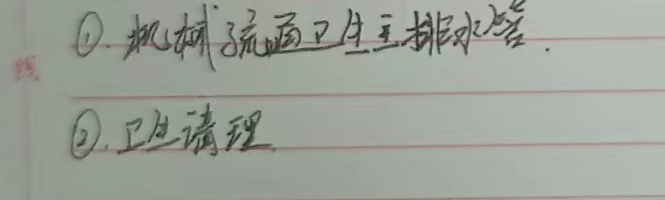 ①. 机械疏通卫生主排水管.
②. 卫生清理
线